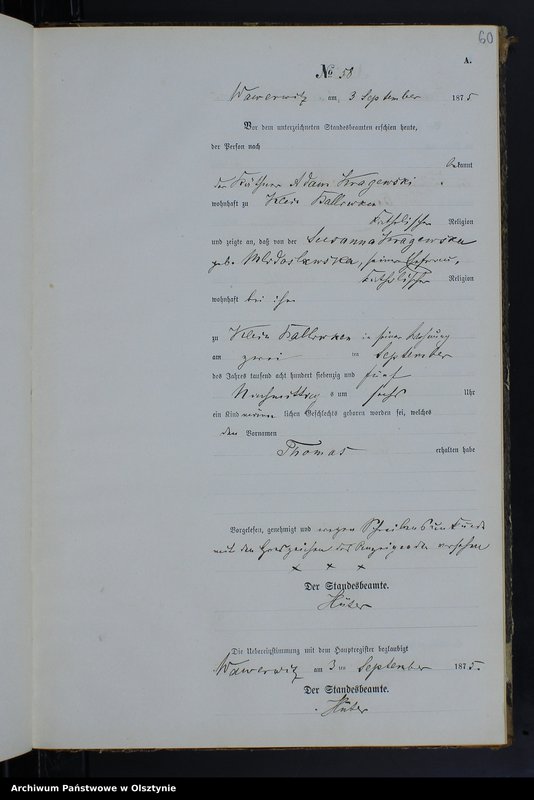 60
A.
No 58
Wawerwitz am 3 September 1875
Vor dem unterzeichneten Standesbeamten erschien heute,
der Person nach
bekannt
der Käthner Adam Kragewski
wohnhaft zu Klein Ballowken
katholischer Religion
und zeigte an, daß von der Susanna Kragewska
geb. seiner Ehefrau,
katholischer Religion
wohnhaft bei ihm
zu Klein Ballowken in seiner Wohnung
am zwei ten September
des Jahres tausend acht hundert siebenzig und fünf
Nachmittag s um sechs Uhr
ein Kind männlichen Geschlechts geboren worden sei, welches
den Vornamen
Thomas erhalten habe
Vorgelesen, genehmigt und wegen Schreibensunkunde
mit den Handzeichen des Anzeigenden versehen
× × ×
Der Standesbeamte.
Hüber
Die Uebereinstimmung mit dem Hauptregister beglaubigt
Wawerwitz am 3 ten September 1875.
Der Standesbeamte.
Hüber
Archiwum Państwowe w Olsztynie